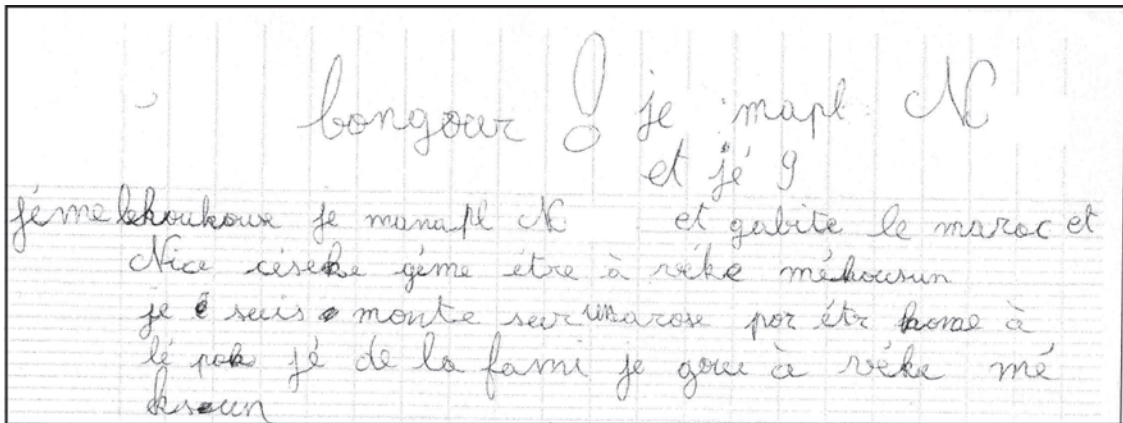 bongour ! je mapl N
et jé 9
jéme lekoukouse je manapl N et gabite le maroc et
Nice céseke géme étre à véke mékousun
je suis monte sur un arose por étr kome à
lé pak jé de la fami je goue à véke mé
ksoun